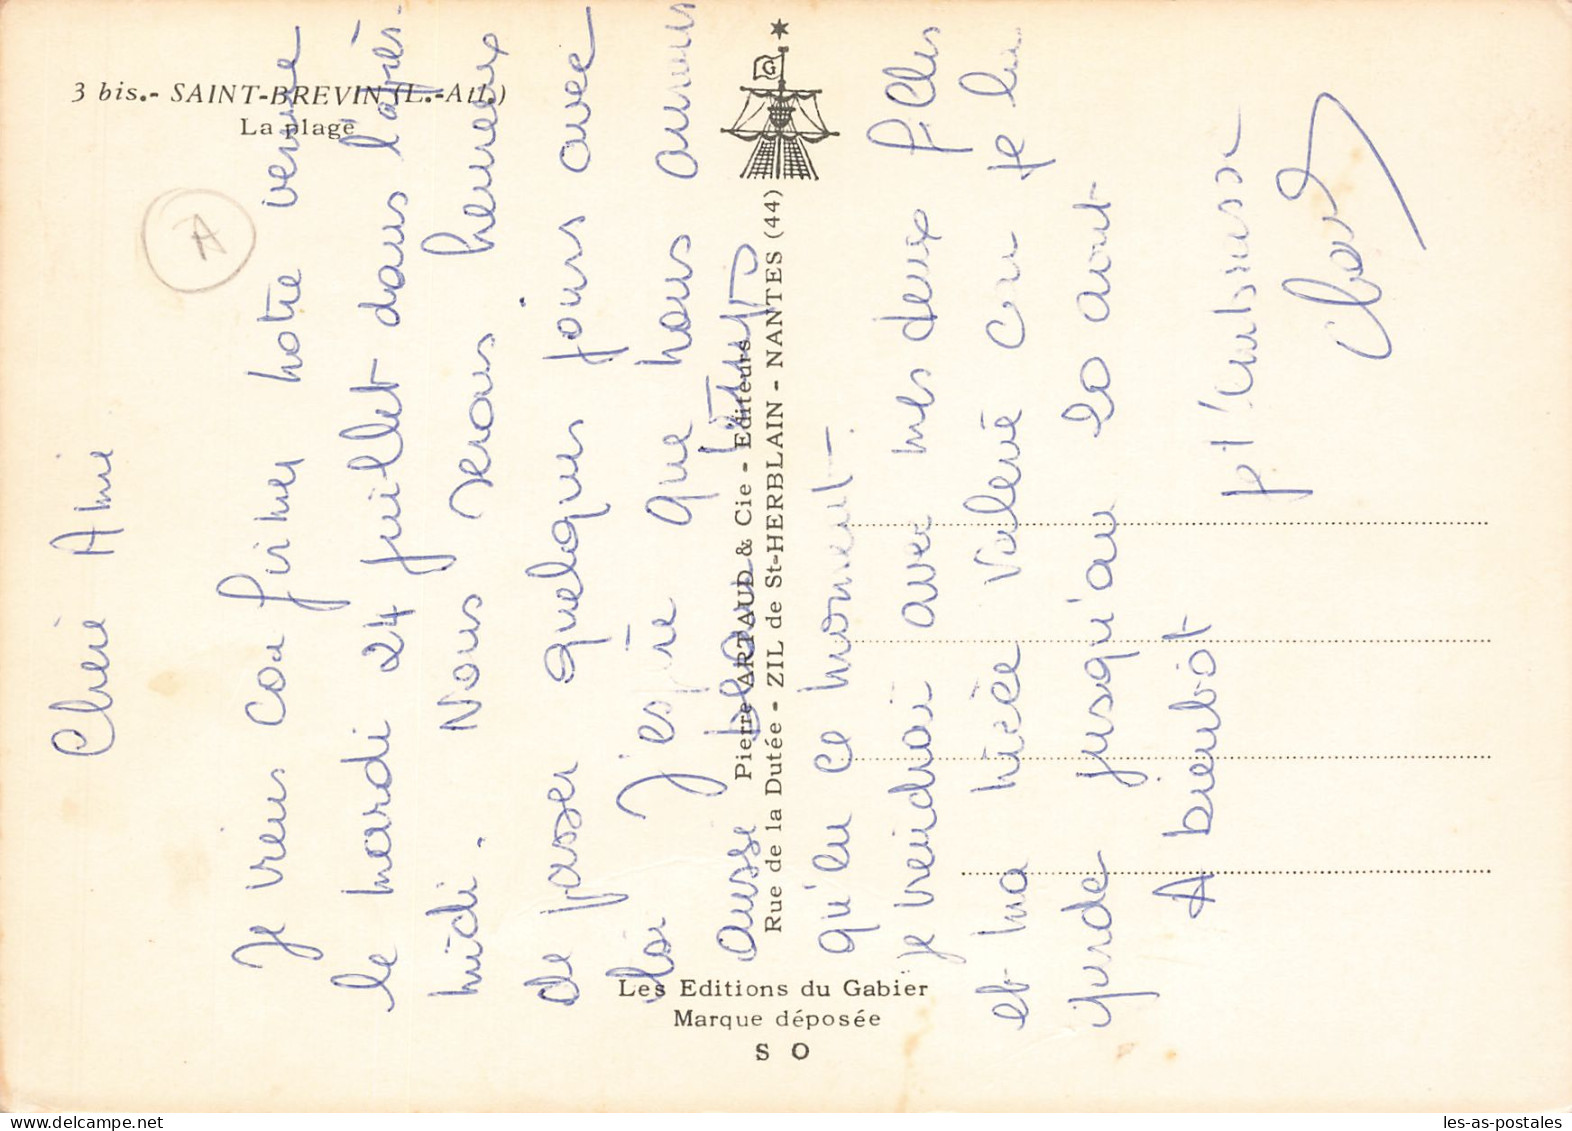 3 bis.- SAINT-BREVIN (L.-Atl.)
La plage
A
Chère Amie
Je viens confirmer notre venue
le mardi 24 juillet dans l'après-
midi. Nous serons heureux
de passer quelques jours avec
toi J'espère que nous aurons
aussi beau temps
qu'en ce moment
je viendrai avec mes deux filles
et ma nièce Valérie car je la
garde jusqu'au 20 août
A bientôt
je t'embrasse
G
Pierre ARTAUD & Cie - Editeurs
Rue de la Dutée - ZIL de St-HERBLAIN - NANTES (44)
Les Editions du Gabier
Marque déposée
S O
les-as-postales